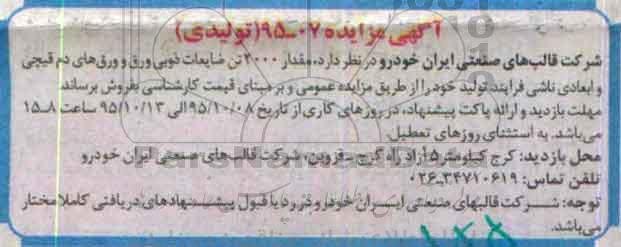 آگهی مزایده ۰۷-۹۵(تولیدی)
شرکت قالب‌های صنعتی ایران خودرو در نظر دارد، مقدار ۲۰۰۰ تن ضایعات ذوبی ورق و ورق‌های دم قیچی
و ابعادی ناشی فرایند تولید خود را از طریق مزایده عمومی و بر مبنای قیمت کارشناسی بفروش برساند.
مهلت بازدید و ارائه پاکت پیشنهاد، در روزهای کاری از تاریخ ۹۵/۱۰/۰۸ الی ۹۵/۱۰/۱۳ ساعت ۸-۱۵
می‌باشد. به استثنای روزهای تعطیل.
محل بازدید: کرج کیلومتر ۵ آزاد راه کرج - قزوین، شرکت قالب‌های صنعتی ایران خودرو
تلفن تماس: ۳۴۷۱۰۶۱۹-۰۲۶
توجه: شرکت قالبهای صنعتی ایران خودرو در رد یا قبول پیشنهادهای دریافتی کاملا مختار
می‌باشد.